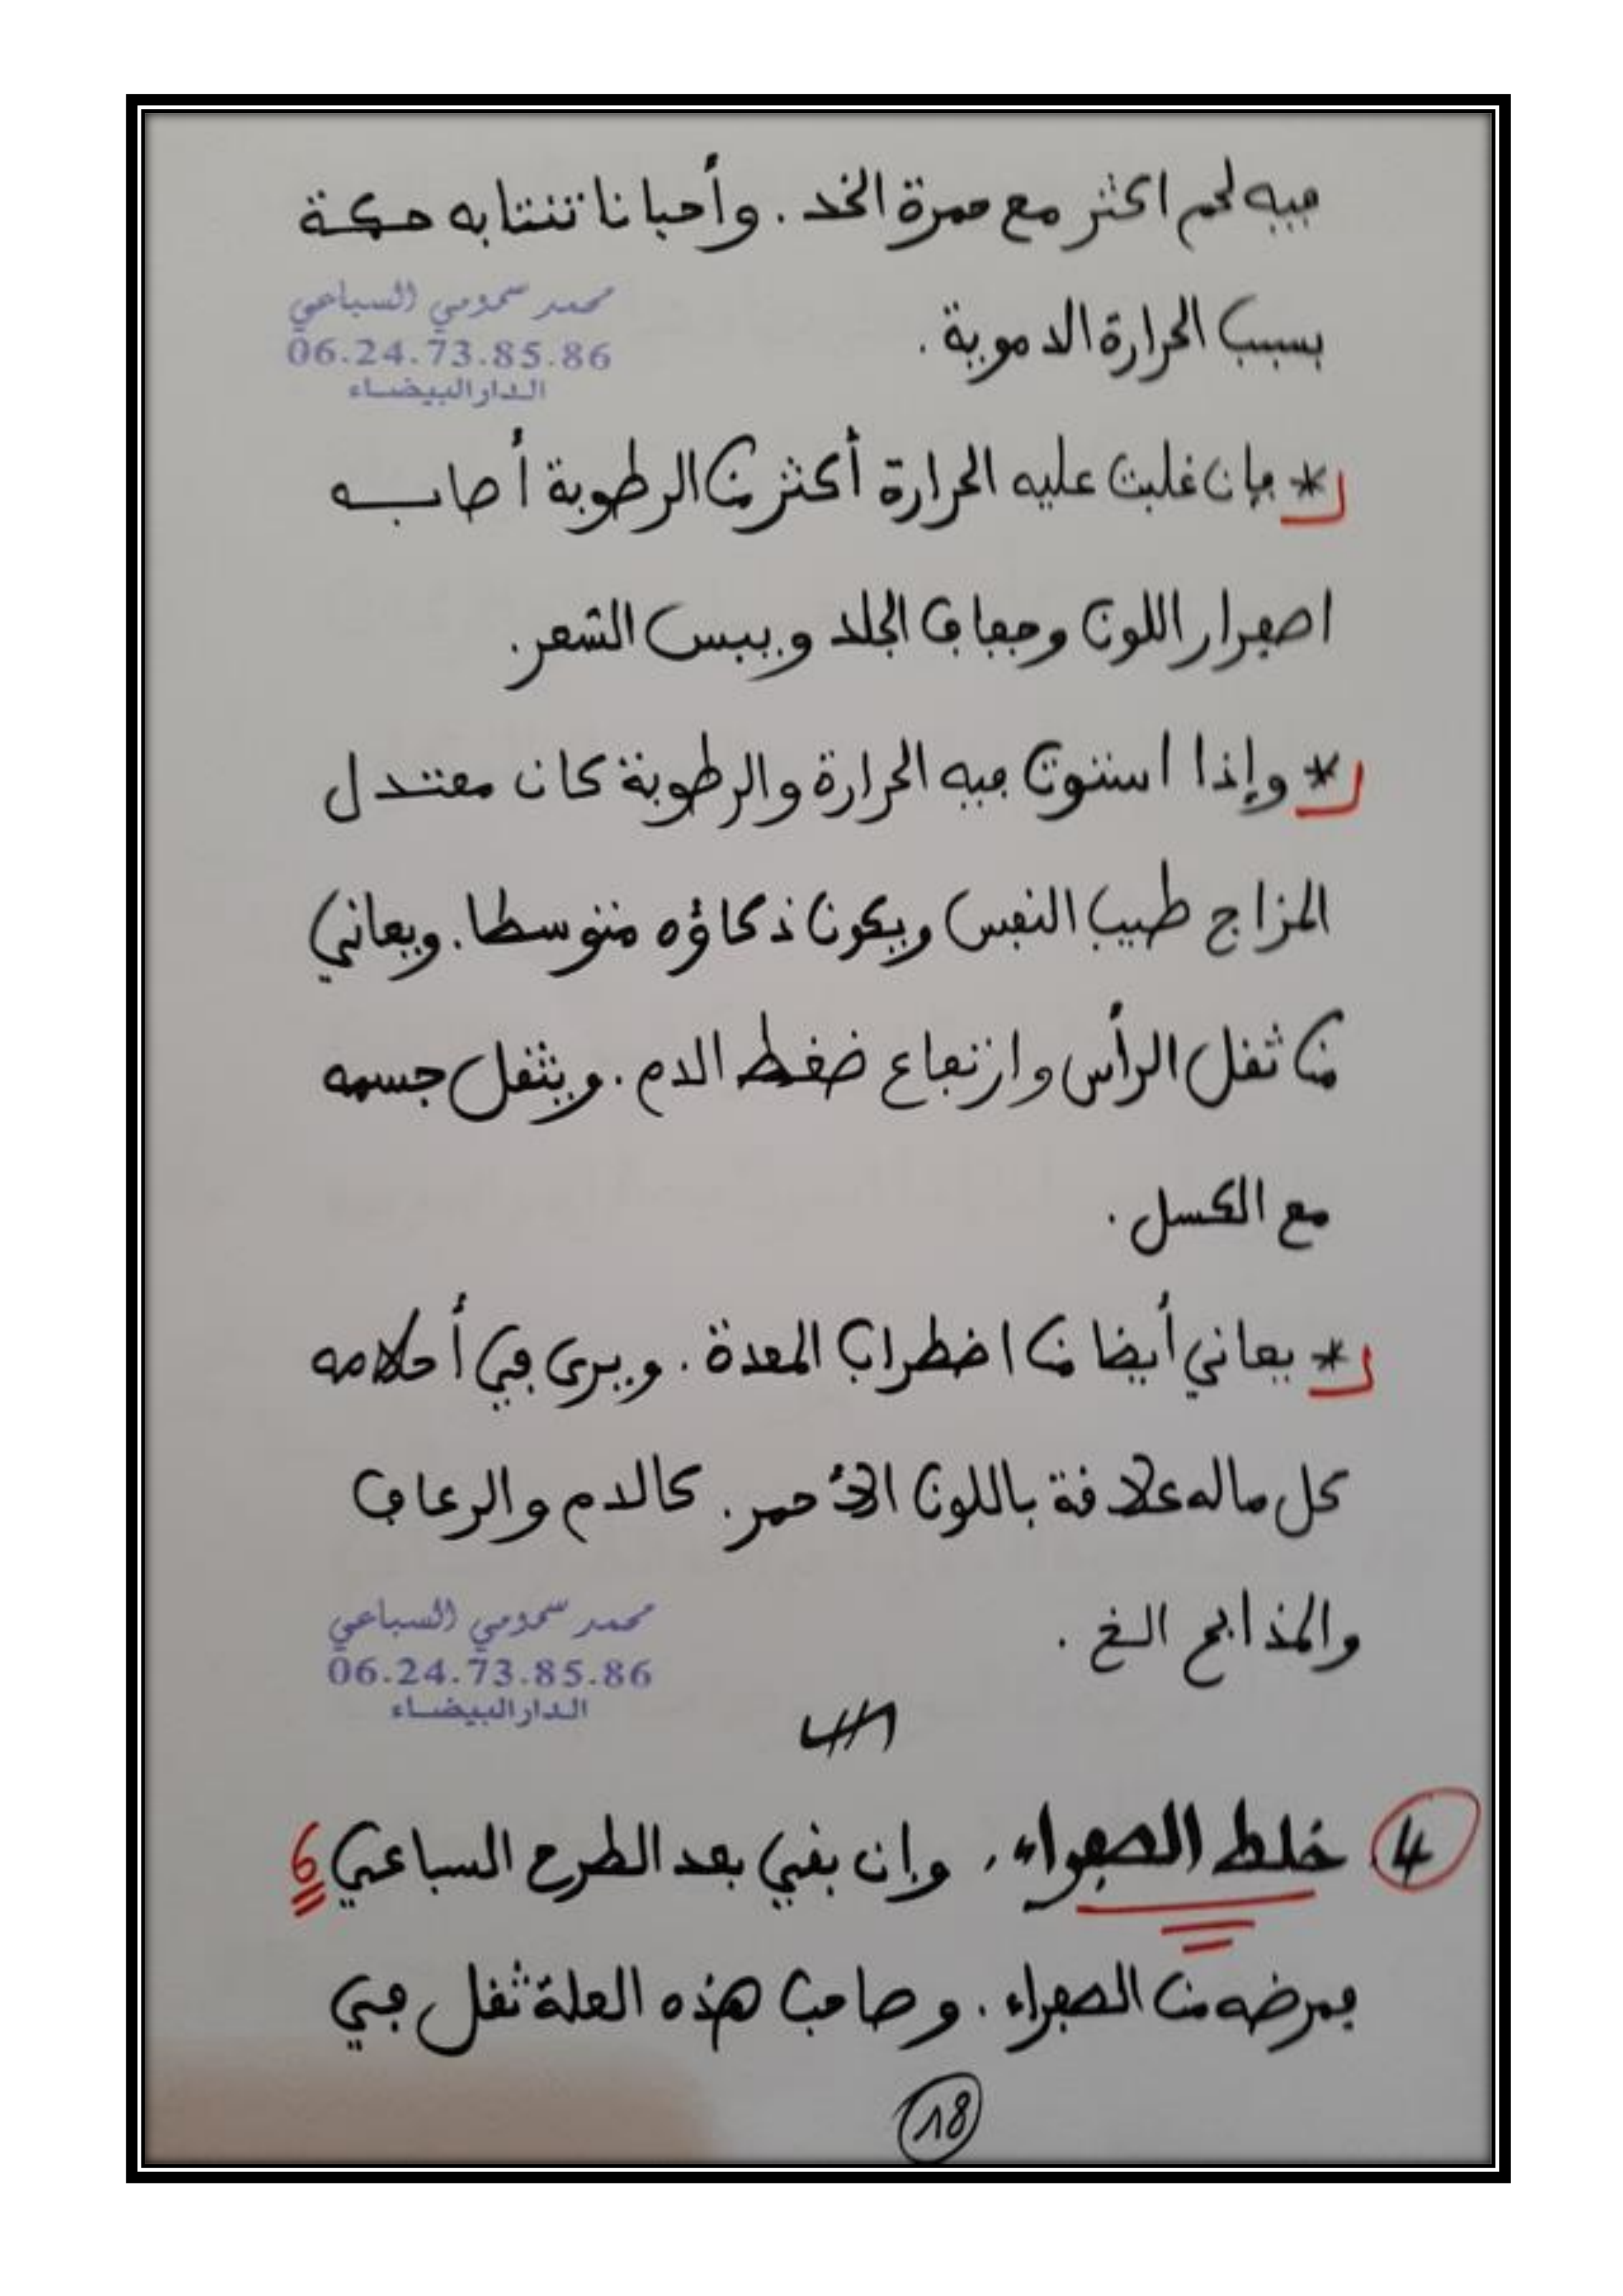 فيه لحم اكثر مع حمرة الخد . وأحيانا تنتابه حكة
محمد سحومي السباعي
بسبب الحرارة الدموية .
06.24.73.85.86
الدار البيضاء
* فإن غلبت عليه الحرارة أكثر من الرطوبة أصابه
اصفرار اللون وجفاف الجلد ويبس الشعر .
* وإذا استوت فيه الحرارة والرطوبة كان معتدل
المزاج طيب النفس ويكون ذكاؤه متوسطا . ويعاني
من ثقل الرأس وارتفاع ضغط الدم . ويثقل جسمه
مع الكسل .
* يعاني أيضا من اضطراب المعدة . ويرى في أحلامه
كل ماله علاقة باللون الأحمر . كالدم والرعاف
والمذابح الخ .
محمد سحومي السباعي
06.24.73.85.86
الدار البيضاء
4 خلط الصفراء . وإن بقي بعد الطرح السباعي 6
فمرضه من الصفراء . وصاحب هذه العلة ثقل في
18